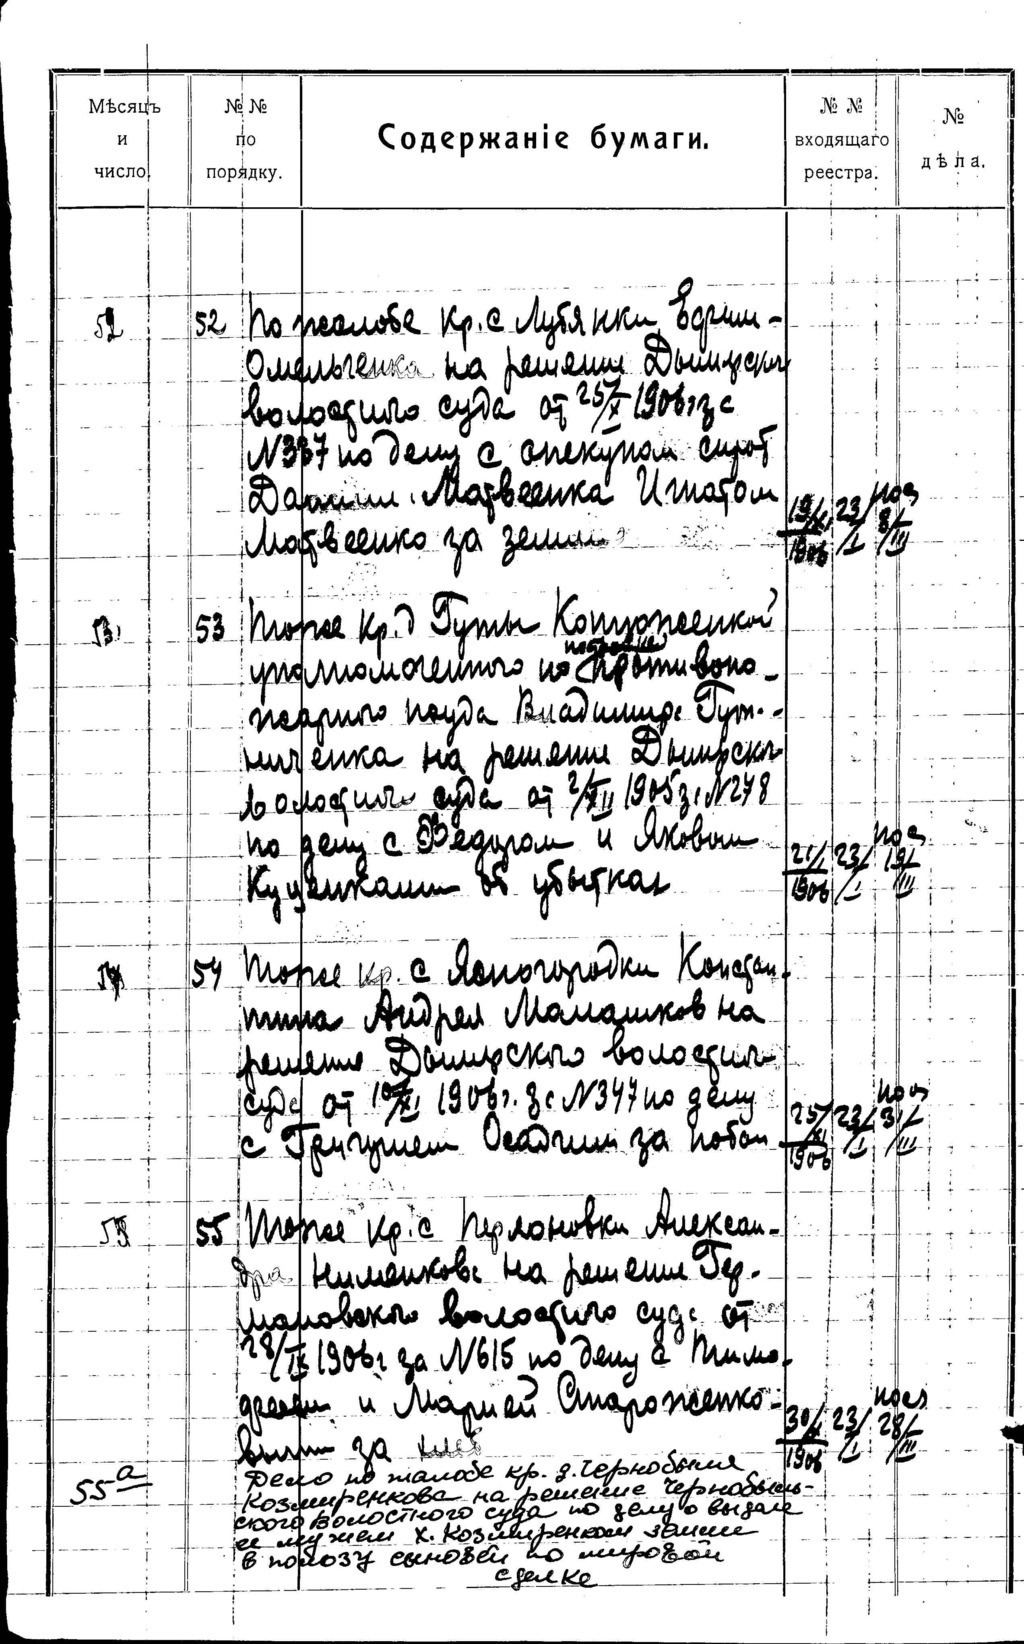 Мѣсяцъ
и
число.
№ №
по
порядку.
Содержаніе бумаги.
№ №
входящаго
реестра.
№
дѣла.
52 52 По жалобе кр. с Лубянки Ефим-
Омельченка на решение Дымерского
волостного суда от 25/X 1906 г за
N337 по делу с опекуном сирот
Даниила Матвеенка Игнатом
Матвеенко за землю
19/XI 1906 23/I пос 8/III
53 53 Тоже кр. д Гуты Катюженской
уполномоченного по противопо-
жарного Владимира Гут-
ниченка на решение Дымерского
волостного суда от 2/XII 1905 за N278
по делу с Федором и Яковом
Куценками об убытках
21/I 1906 23/I пос 19/III
54 54 Тоже кр. с Ясногородки Констан-
тина Андрея Мамашков на
решение Дымерского волостного
суда от 10/XI 1906 г. за N347 по делу
с Григорием Осадчим за побои
25/XI 1906 23/I пос 31/III
55 55 Тоже кр. с Пермановки Алексан-
дра Нименкова на решение Гер-
мановского волостного суда от
28/IX 1906 г за N615 по делу с Тимо-
феем и Марией Стороженко-
выми за хлеб
30/X 1906 23/I пос 28/III
55а Дело по жалобе кр. д. Чернобыля
Козмиренкова на решение Чернобыль-
ского волостного суда по делу о выдаче
ее мужем Х. Козмиренком земли
в пользу сыновей по мировой
сделке